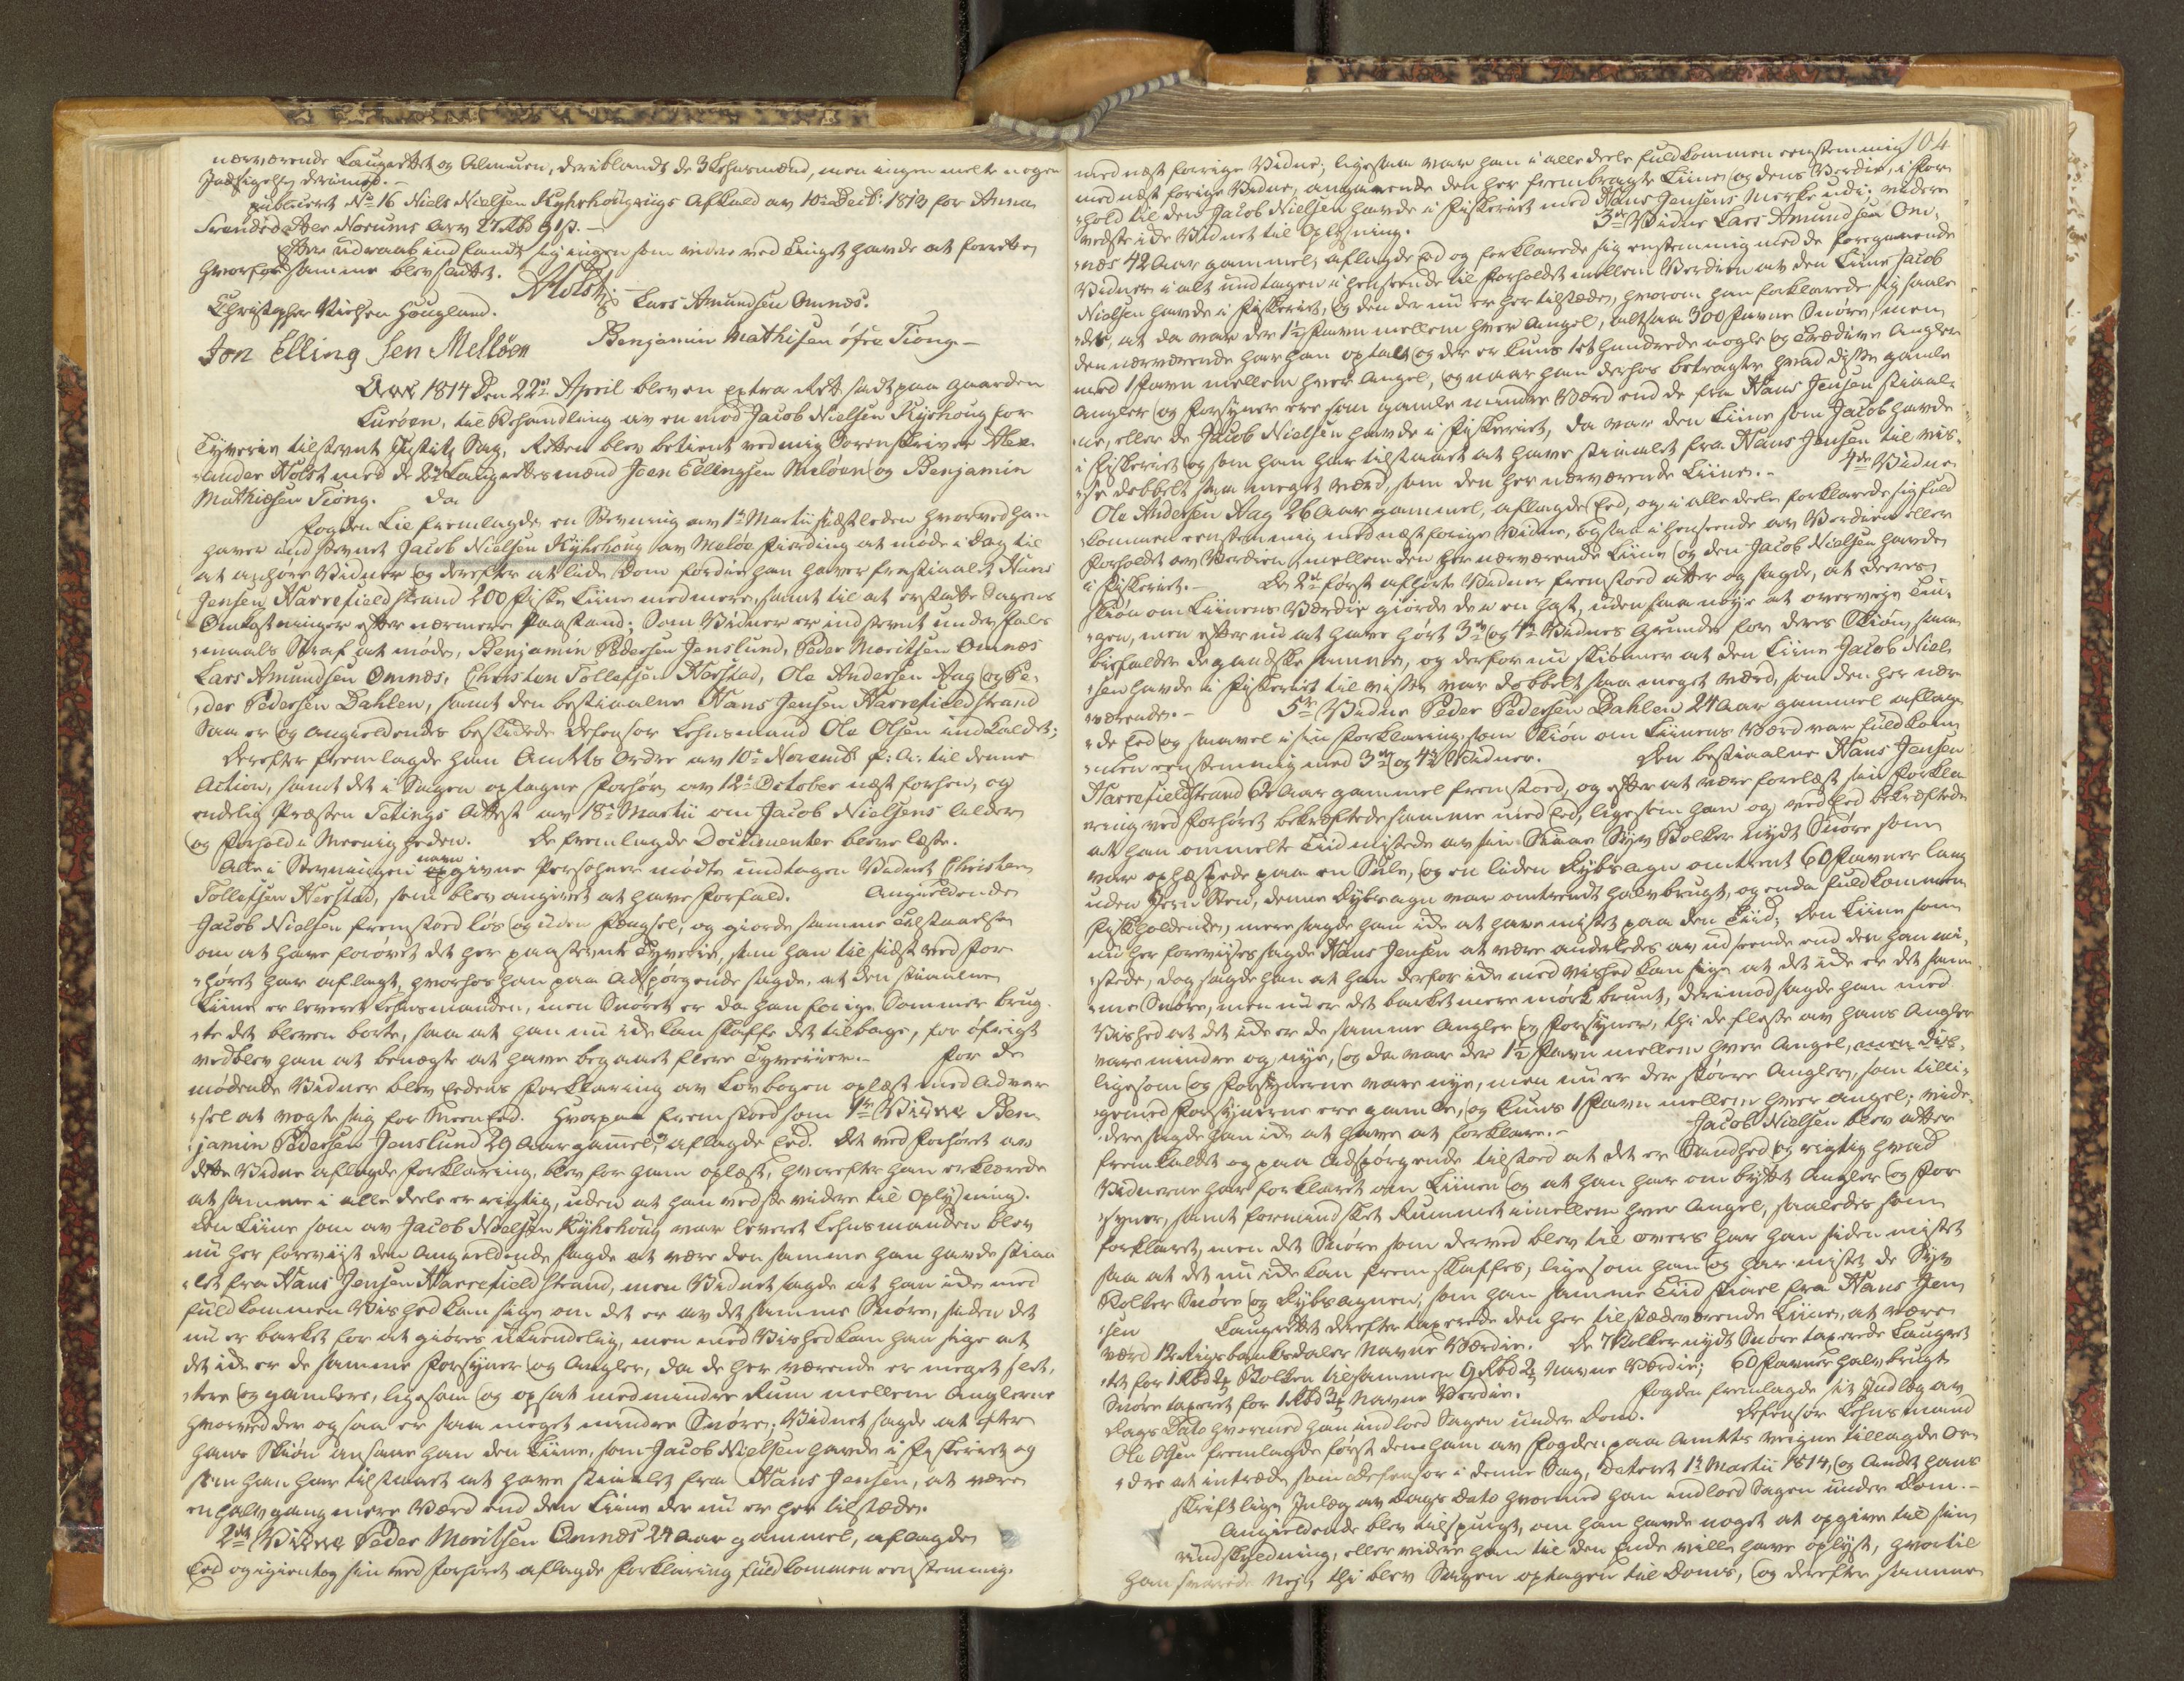 nærværende Laugrettet og Almuen, deriblandt de 3 Lehnsmænd, men ingen meldte nogen
Indsigelse derimod.-
publiceret No 16 Niels Nielsen Kyhrhougrügs Afkald av 10de Decbr 1813 for Anna
Svendsd.
Efter udraab indfandt sig ingen som videre ved Tinget havde at forrette,
hvorfor samme blev sluttet.
AHolst
Lars Amundsen Omnæs.
Christopher Nielsen Hougland.
Benjamin Mathisen öfre Tiong-
Jon Elling Sen Mellöen
Aar 1814 Den 22de April blev en extra Ret sadt paa gaarden
Luröen, til Behandling av en mod Jacob Nielsen Kyhrhoug for
Tyverie tilstevnt Justits Sag, Retten blev betient ved mig Sorenskriver Alex-
ander Holst med de 2de Laugrettesmænd Joen Ellingsen Melöen og Benjamin
Mathiesen Tiong. Da
Fogden Lie fremlagde en Stevning av 1te Martii sidstleden hvorved han
haver indstevnet Jacob Nielsen Kyhrhoug av Melöe Fierding at möde i Dag til
at anhöre Vidner og derefter at lide Dom fordi han haver frastiaalet Hans
Jensen Harrefieldstrand 200 Fiske Liine med mere, samt til at erstatte Sagens
Omkostninger efter nærmere Paastand; Som Vidner er indstevnt under Fals-
maals Straf at möde, Benjamin Pedersen Jenslund, Peder Moritsen Omnæs
Lars Amundsen Omnæs, Christen Tollefsen Herstad, Ole Andersen Aag og Pe-
der Pedersen Dahlen, samt den bestiaalne Hans Jensen Harrefieldstrand
Saa er og angieldendes beskikkede Defensor Lehnsmand Ole Olsen indkaldet;
Derefter fremlagde han Amtets Ordre av 10de Novembr f: A: til denne
Action, samt det i Sagen optagne Forhör av 12te October næst forhen, og
endelig Præsten Tetings Attest av 18de Martii om Jacob Nielsens Alder
og Forhold i Meenigheden. De fremlagde Documenter bleve læste.
Alle i Stevningen navngivne Persohner mödte undtagen Vidnet Christen
Tollefsen Herstad, som blev angivet at have Forfald. Angieldende
Jacob Nielsen fremstoed lös og uden Fængsel, og giorde samme Tilstaaelse
om at have forövet det her paastevnte Tyverie, som han til sidst ved For-
höret har aflagt, hvorhos han paa Adspörgende sagde, at den stiaalne
Liine er leveret Lehnsmanden, men Snöret er da han forige Sommer brug-
te det bleven borte, saa at han nu icke kan skaffe det tilbage, for öfrigt
vedblev han at benægte at have begaaet flere Tyverier.- For de
mödende Vidner blev Eedens Forklaring av Lovbogen oplæst med Advar-
sel at vogte sig for Meeneed. Hvorpaa fremstoed som 1te Vidne Ben-
jamin Pedersen Jenslund 29 Aar gammel, aflagde Eed. Det ved Forhöret av
dette Vidne aflagde Forklaring, blev for ham oplæst, hvorefter han erklærede
at samme i alle deele er rigtig, uden at han vedste videre til Oplysning.
Den Liine som av Jacob Nielsen Kyhrhoug var leveret Lehnsmanden blev
nu her foreviist den Angieldende sagde at være den samme han havde stiaa-
let fra Hans Jensen Harrefieldstrand, men Vidnet sagde at han icke med
fuldkommen Vished kan sige om det er av det samme Snöre, siden det
nu er barket for at giöres ukiendelig, men med Vished kan han sige at
det icke er de samme Forsyner og Angler, da de her værende er meget slet-
tere og gamlere, ligesom og opsat med mindre Rum mellem Anglerne
hvorved der ogsaa er saa meget mindre Snöre; Vidnet sagde at efter
hans Skiön ansaae han den Liine, som Jacob Nielsen havde i Fiskeriet og
som han har tilstaaet at have stiaalet fra Hans Jensen, at være
en halv gang mere Værd end den Liine der nu er her tilstæde.
2det Vidne Peder Moritsen Omnæs 24 Aar gammel, aflagde
Eed og igientog sin ved Forhöret aflagde Forklaring fuldkommen eenstemmig
104
med næst forrige Vidne; ligesaa var han i alle deele fuldkommen eenstemmig
med næst forige Vidne, angaaende den her frembragte Liine og dens Værdie, i For-
hold til den Jacob Nielsen havde i Fiskeriet med Hans Jensens Merke udi. videre
vedste icke Vidnet til Oplysning. 3die Vidne Lars Amundsen Om-
næs 42 Aar gammel, aflagde Eed og forklarede sig eenstemmig med de foregaaende
Vidner i alt undtagen i henseende til Forholdet mellem Verdien av den Liine Jacob
Nielsen havde i Fiskeriet, og den der nu er her tilstæde, hvorom han forklarede sig saale-
des, at da var der 1½ Favn mellem hver Angel, altsaa 300 Favne Snöre, men
den nærværende har han optalt og der er kuns 1et hundrede nogle og Tredive Angler
med 1 Favn mellem hver Angel, og naar han derhos betragter hvad disse gamle
Angler og Forsyner ere som gamle mindre Værd end de fra Hans Jensen stiaal-
ne, eller de Jacob Nielsen havde i Fiskeriet, da var den Liine som Jacob havde
i Fiskeriet og som han har tilstaaet at have stiaalet fra Hans Jensen til vis-
se dobbelt saa meget værd, som den her nærværende Liine.- 4de Vidne
Ole Andersen Aag 26 Aar gammel, aflagde Eed, og i alle deele forklarede sig fuld-
kommen eenstemmig med næst forige Vidne, ogsaa i henseende av Verdien eller
Forholdet av Verdien mellem den her nærværende Liine og den Jacob Nielsen havde
i Fiskeriet.- De 2de först afhörte Vidner fremstoed atter og sagde, at deres
Skiön om Liinens Værdie giorde de i en Hast, uden saa nöye at overveje Tin-
gen, men efter nu at have hört 3die og 4de Vidnes Grunde for deres Skiön, saa
bifalder de gandske samme, og derfor nu skiönner at den Liine Jacob Niel-
sen havde i Fiskeriet til visse var dobbelt saa meget værd, som den her nær-
værende.- 5te Vidne Peder Pedersen Dahlen 24 Aar gammel aflag-
de Eed og saavel i sin Forklaring som Skiön om Liinens Værd var fuldkom-
men eenstemmig med 3die og 4de Vidner. Den bestiaalne Hans Jensen
Harrefieldstrand Aar gammel fremstoed, og efter at være forelæst sin Forkla-
ring ved Forhöret bekræftede samme med Eed, ligesom han og ved Eed bekræftede
at han ommelte Tiid mistede av sin Syv Bolker nydt Snöre som
var ophespede paa en Snle, og en liden Dybsagn omtrent 60 Favner lang
uden Jern Steen, denne Dybsagn var omtrendt halvbrugt, og enda fuldkommen
Fiskholdende, mere sagde han icke at have mistet paa den Tiid; Den Liine som
nu her forevises sagde Hans Jensen at være anderledes av udseende end den han mi-
stede, dog sagde han at han derfor icke med vished kan sige at det icke er det sam-
me Snöre, men nu er det barket mere mörk brunt, derimod sagde han med
Vished at det icke er de samme Angler og Forsyner, thi de fleste av hans Angler
vare mindre og nye, og da var der 1½ Favn mellem hver Angel,
ligesom og Forsynerne vare nye, men nu er der större Angler, som tilli-
gemed Forsynerne ere gamle, og kuns 1 Favn mellem hver Angel; vide-
dere sagde han icke at have at forklare.- Jacob Nielsen blev atter
fremkaldet og paa Adspörgende tilstoed at det er Sandhed og rigtig hvad
Vidnerne har forklaret om Liinen og at han har ombyttet Angler og For-
syner, samt formindsket Rummet imellem hver Angel, saaledes som
forklaret, men det Snöre som derved blev til overs har han siden mistet
saa at det nu icke kan fremskaffes, ligesom han og har mistet de Syv
Bolker Snöre og Dybsagnen, som han samme Tiid stiael fra Hans Jen-
sen Laugrettet derefter taxerede den her tilstædeværende Liine, at være
værd 12 Rigsbanksdaler Navne Værdie. De 7 Bolker nydt Snöre taxerede Laugret-
tet for 1 Rbd Bolken tilsammen 9 Rbd Navne Værdie; 60 Favner halvbrugt
Snöre taxeret for 1 Rbd Navne Verdie. Fogden fremlagde sit Indlæg av
Dags Dato hvormed han indloed Sagen under Dom. Defensor Lehnsmand
Ole Olsen fremlagde först den ham av Fogden paa Amtets vegne tillagde Or-
dre at intræde som Defensor i denne Sag, Dateret 1te Martii 1814, og Andet hans
skriftlige Inlæg av Dags Dato hvormed han indloed Sagen under Dom.-
Angieldende blev tilspurgt, om han havde noget at opgive til sin
undskyldning, eller videre han til den Ende ville have oplyst, hvortil
han svarede Nej, thi blev Sagen optagen til Doms, og derefter samme